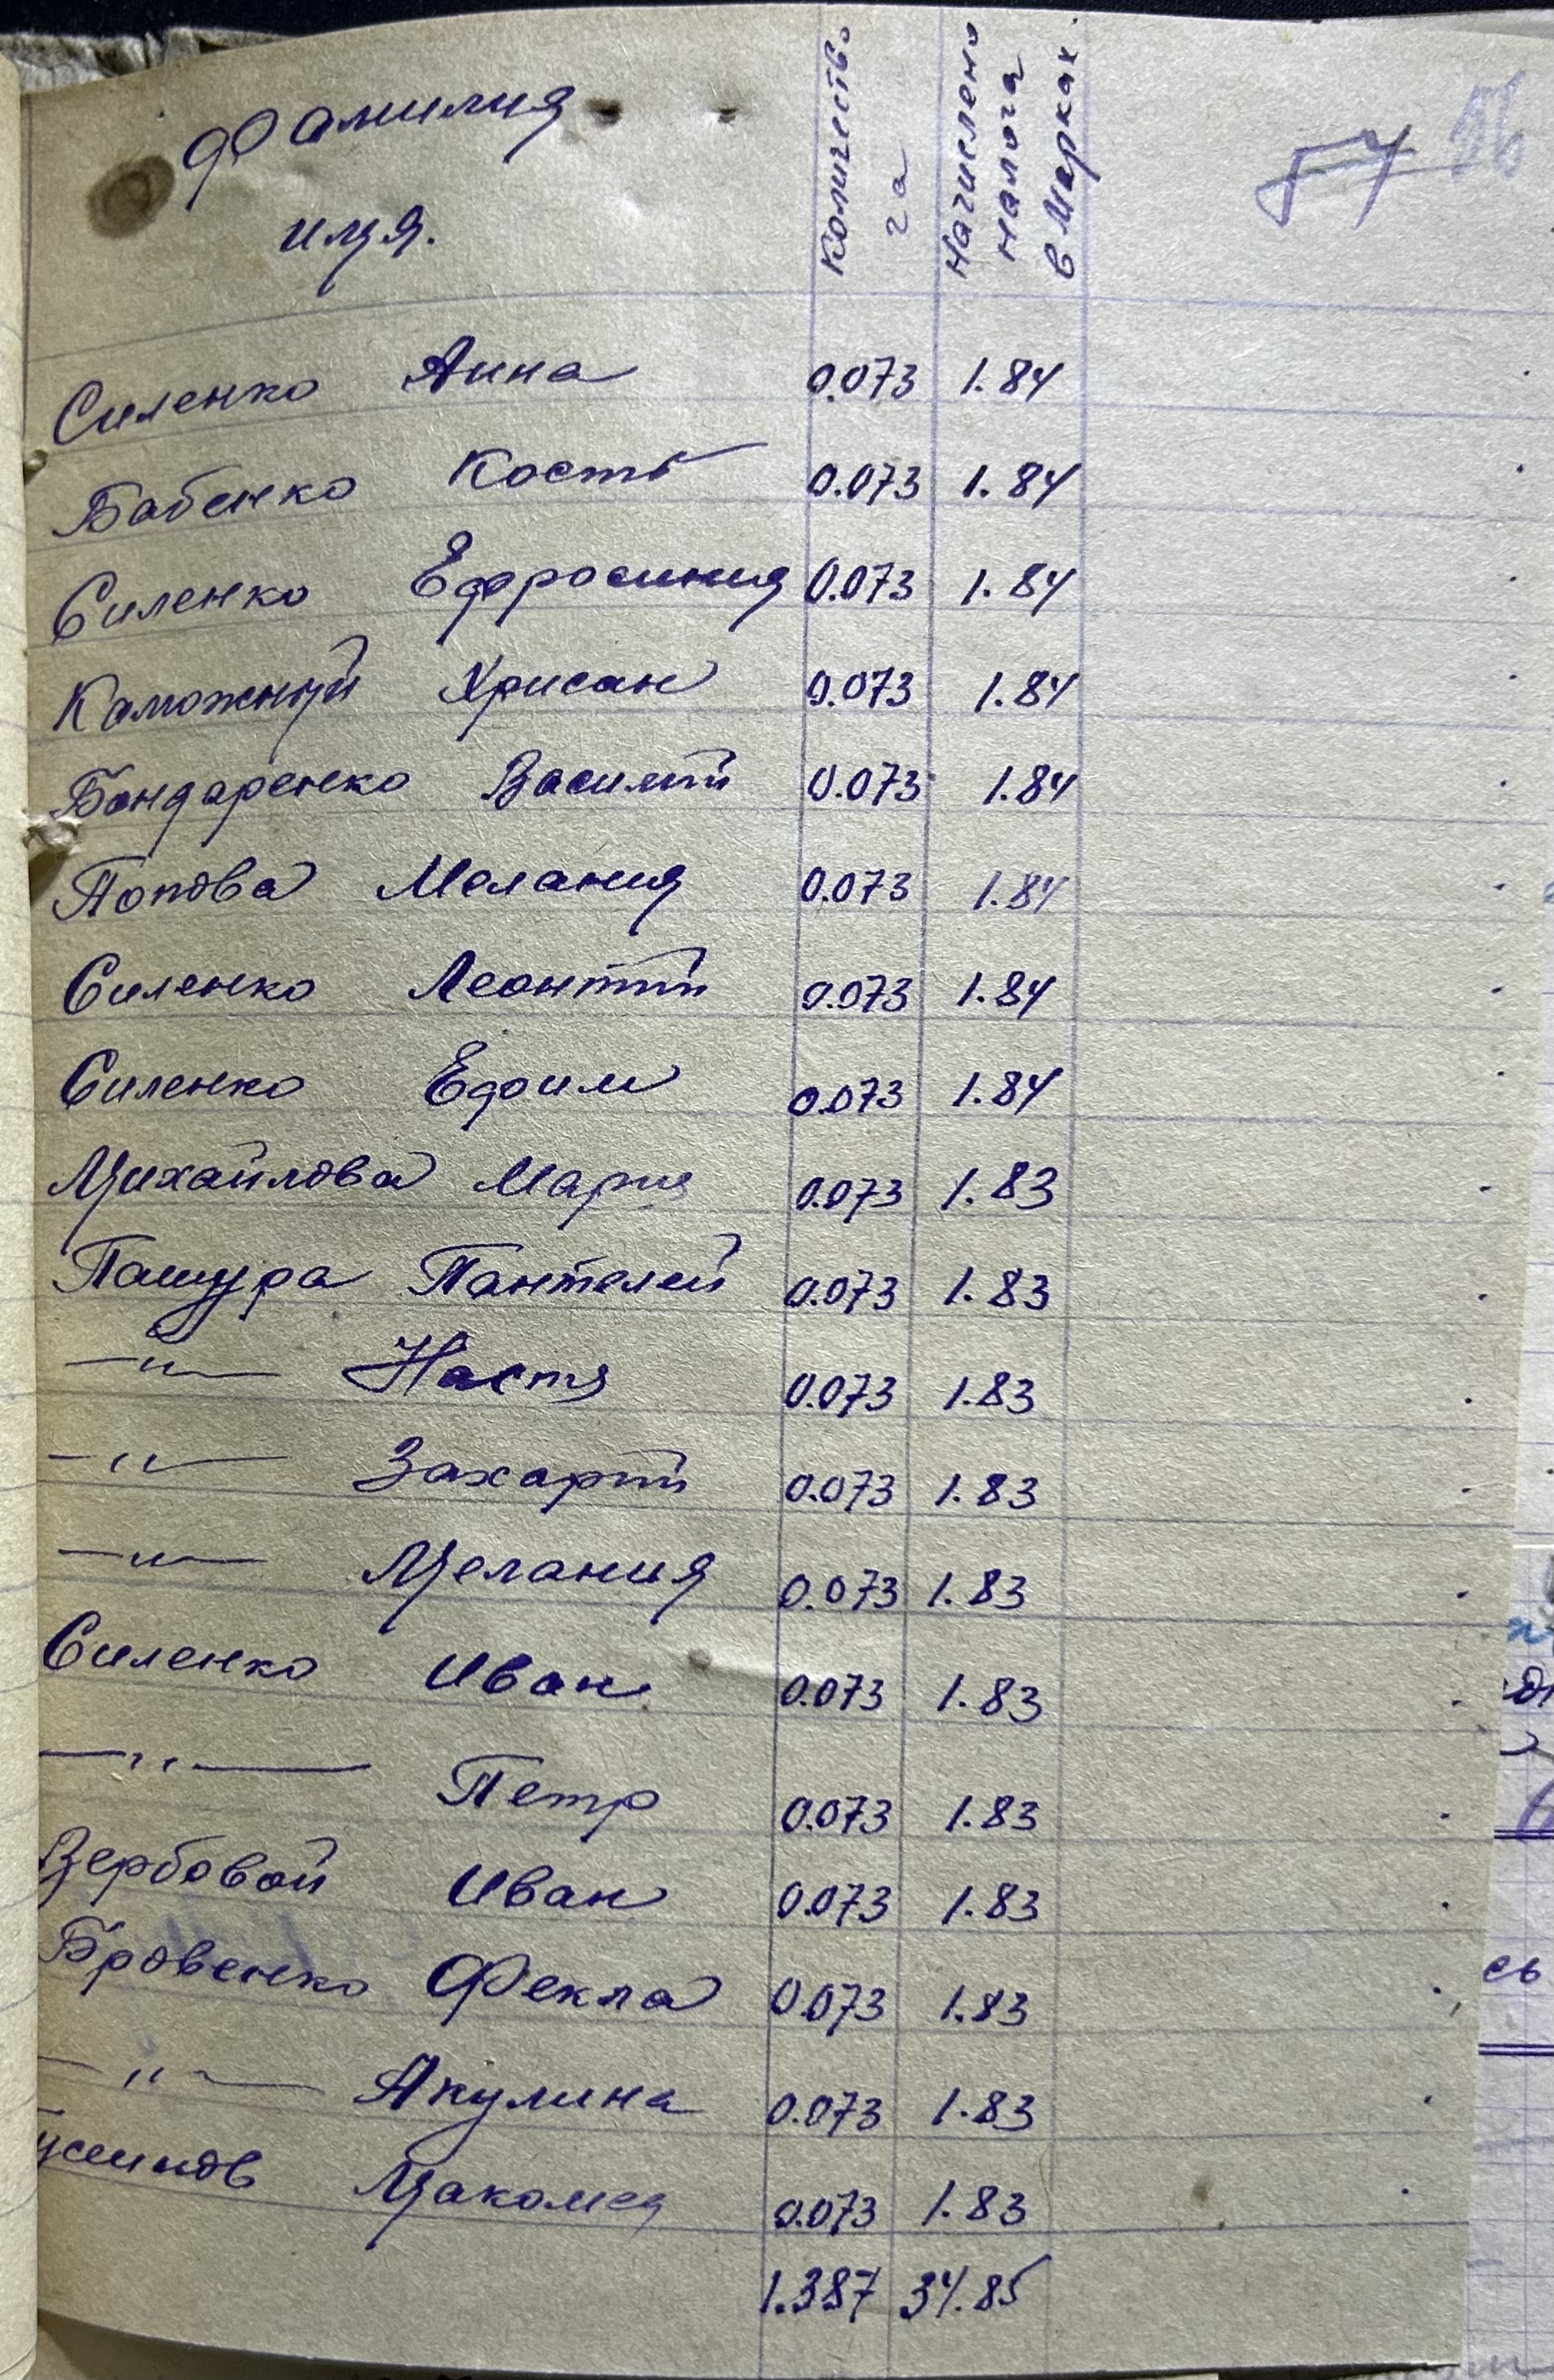 Фамилия
имя.
Количество
га
Начислено
налога
в Марках.
57 56
Силенко Анна 0.073 1.84
Бабенко Кость 0.073 1.84
Силенко Ефросиния 0.073 1.84
Каможный Хрисан 0.073 1.84
Бондаренко Василий 0.073 1.84
Попова Мелания 0.073 1.84
Силенко Леонтий 0.073 1.84
Силенко Ефим 0.073 1.84
Михайлова Мария 0.073 1.83
Пашура Пантелей 0.073 1.83
—"— Настя 0.073 1.83
—"— Захарий 0.073 1.83
—"— Мелания 0.073 1.83
Силенко Иван 0.073 1.83
—"— Петр 0.073 1.83
Вербовой Иван 0.073 1.83
Бровенко Фекла 0.073 1.83
—"— Акулина 0.073 1.83
Макомед 0.073 1.83
1.387 34.85